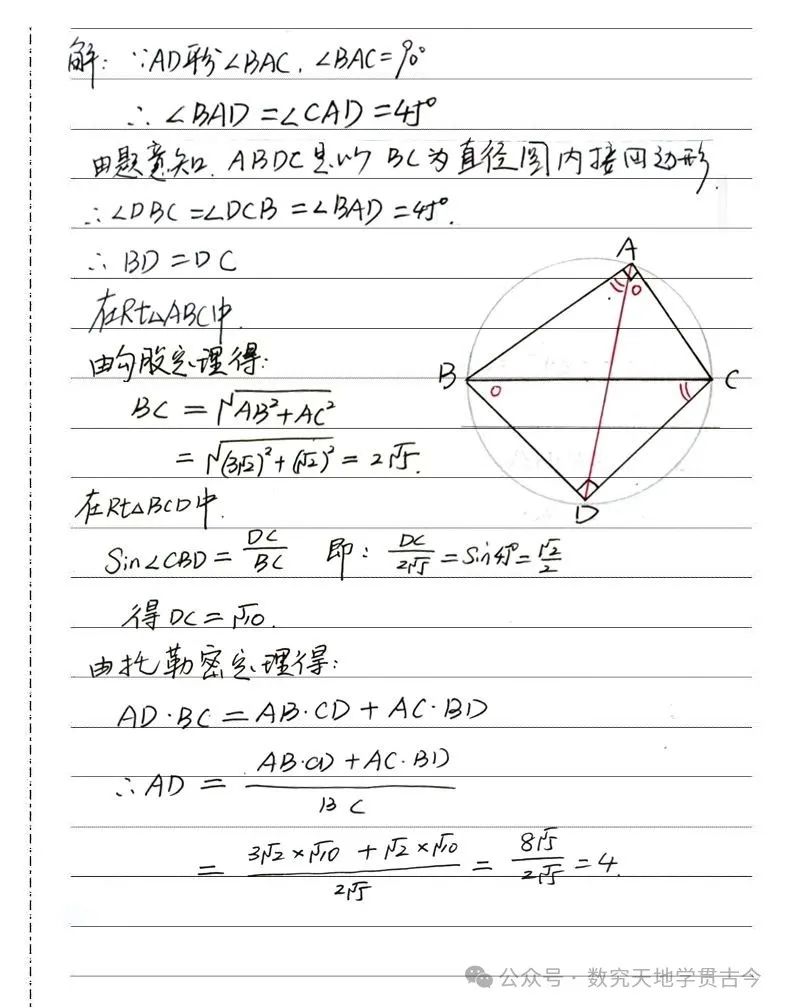 解: ∵AD平分∠BAC, ∠BAC=90°
∴ ∠BAD=∠CAD=45°
由题意知, ABDC是以BC为直径圆内接四边形,
∴∠DBC=∠DCB=∠BAD=45°.
∴ BD=DC
在Rt△ABC中,
由勾股定理得:
BC = √(AB²+AC²)
= √((3√2)²+(√2)²) = 2√5.
在Rt△BCD中,
Sin∠CBD = DC/BC 即: DC/2√5 = Sin45° = √2/2
得 DC=√10.
由托勒密定理得:
AD·BC = AB·CD + AC·BD
∴ AD = (AB·CD + AC·BD)/BC
= (3√2×√10 + √2×√10)/2√5 = 8√5/2√5 = 4.
A
B
C
D
公众号·数究天地学贯古今